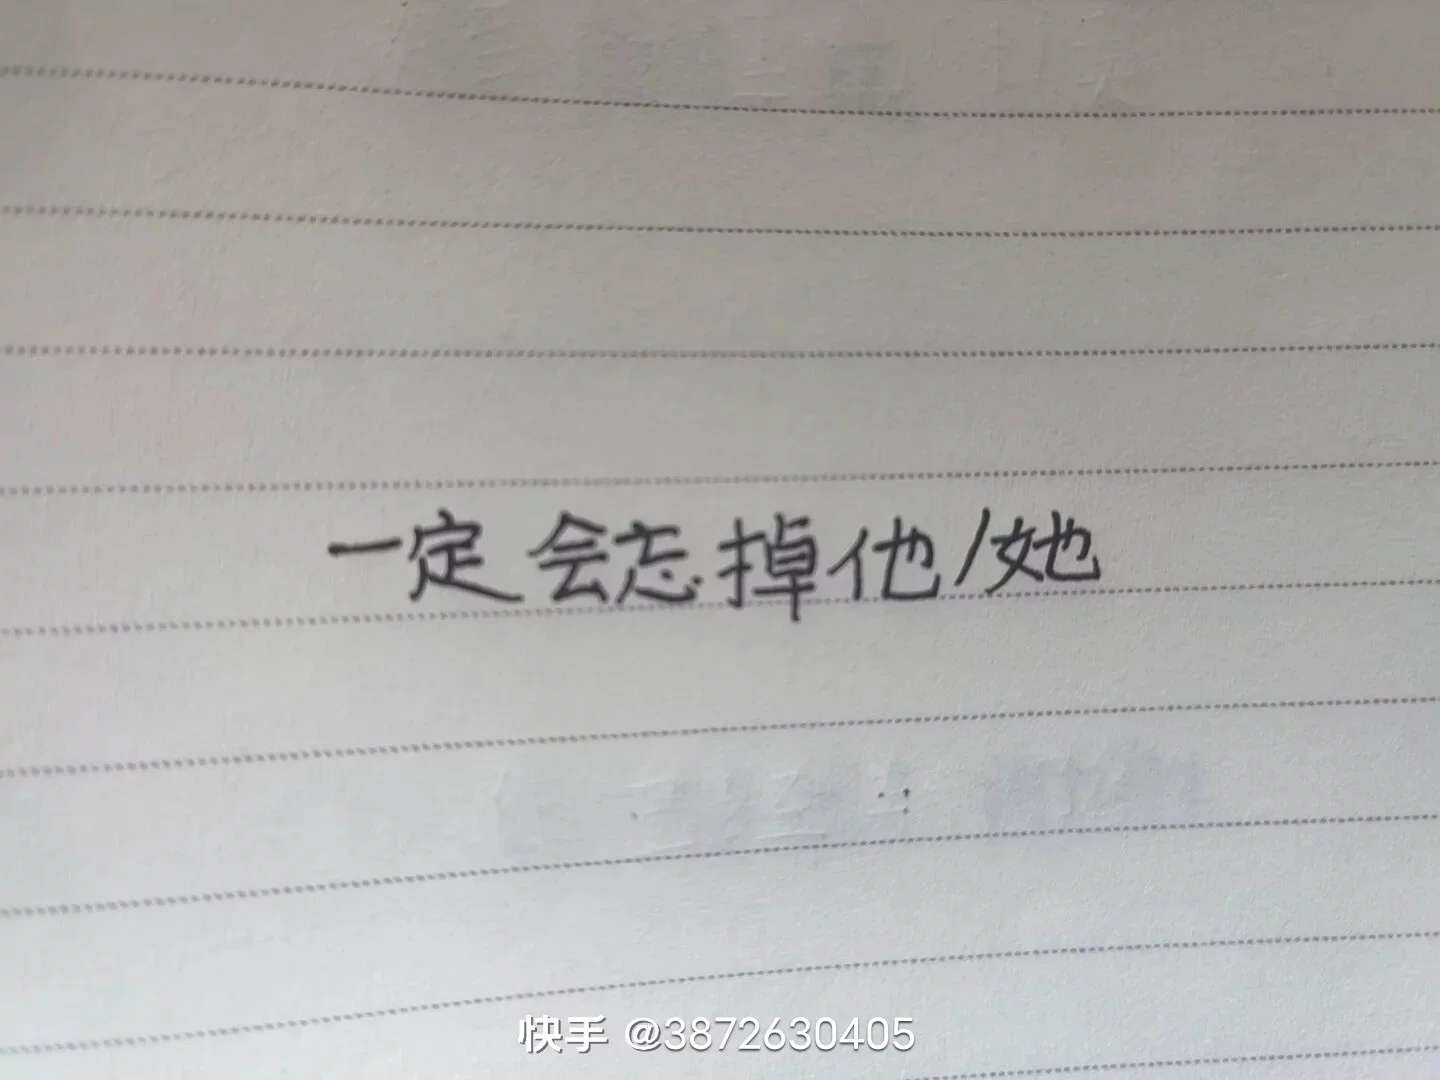 一定会忘掉他/她
快手 @3872630405